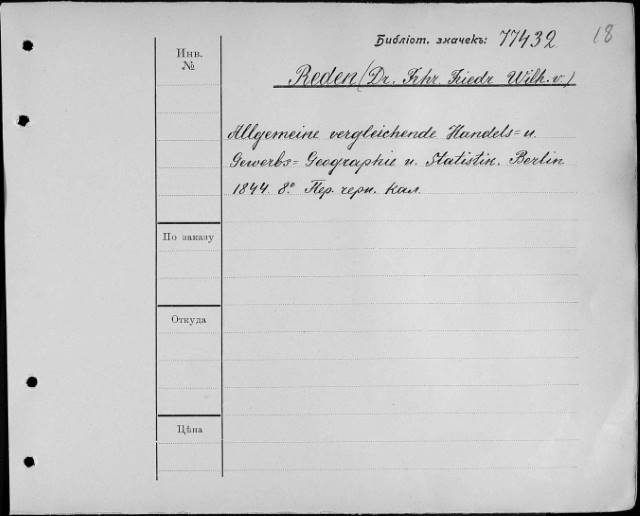 Библіот. значекъ: 77432 18
Инв.
№
Reden (Dr. Frhr. Friedr Wilh. v.)
Allgemeine vergleichende Handels= u.
Gewerbs= Geographie u. Statistik. Berlin
1844. 8º Пер. черн. кал.
По заказу
Откуда
Цѣна